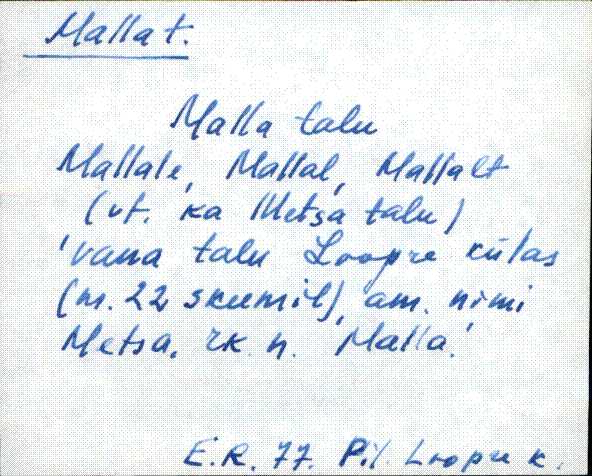 Malla t.
Malla talu
Mallale, Mallal, Mallalt
(vt. ka Metsa talu)
'vana talu Loopre külas
(nr. 22 skeemil), am. nimi
Metsa, rk. n. Malla.'
E.R. 77. Pil. Loopre k.